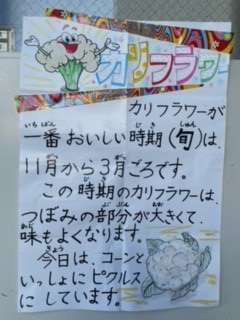 カリフラワー
カリフラワーが
一番おいしい時期(旬)は、
11月から3月ごろです。
この時期のカリフラワーは、
つぼみの部分が大きくて、
味もよくなります。
今日は、コーンと
いっしょにピクルス
にしています。